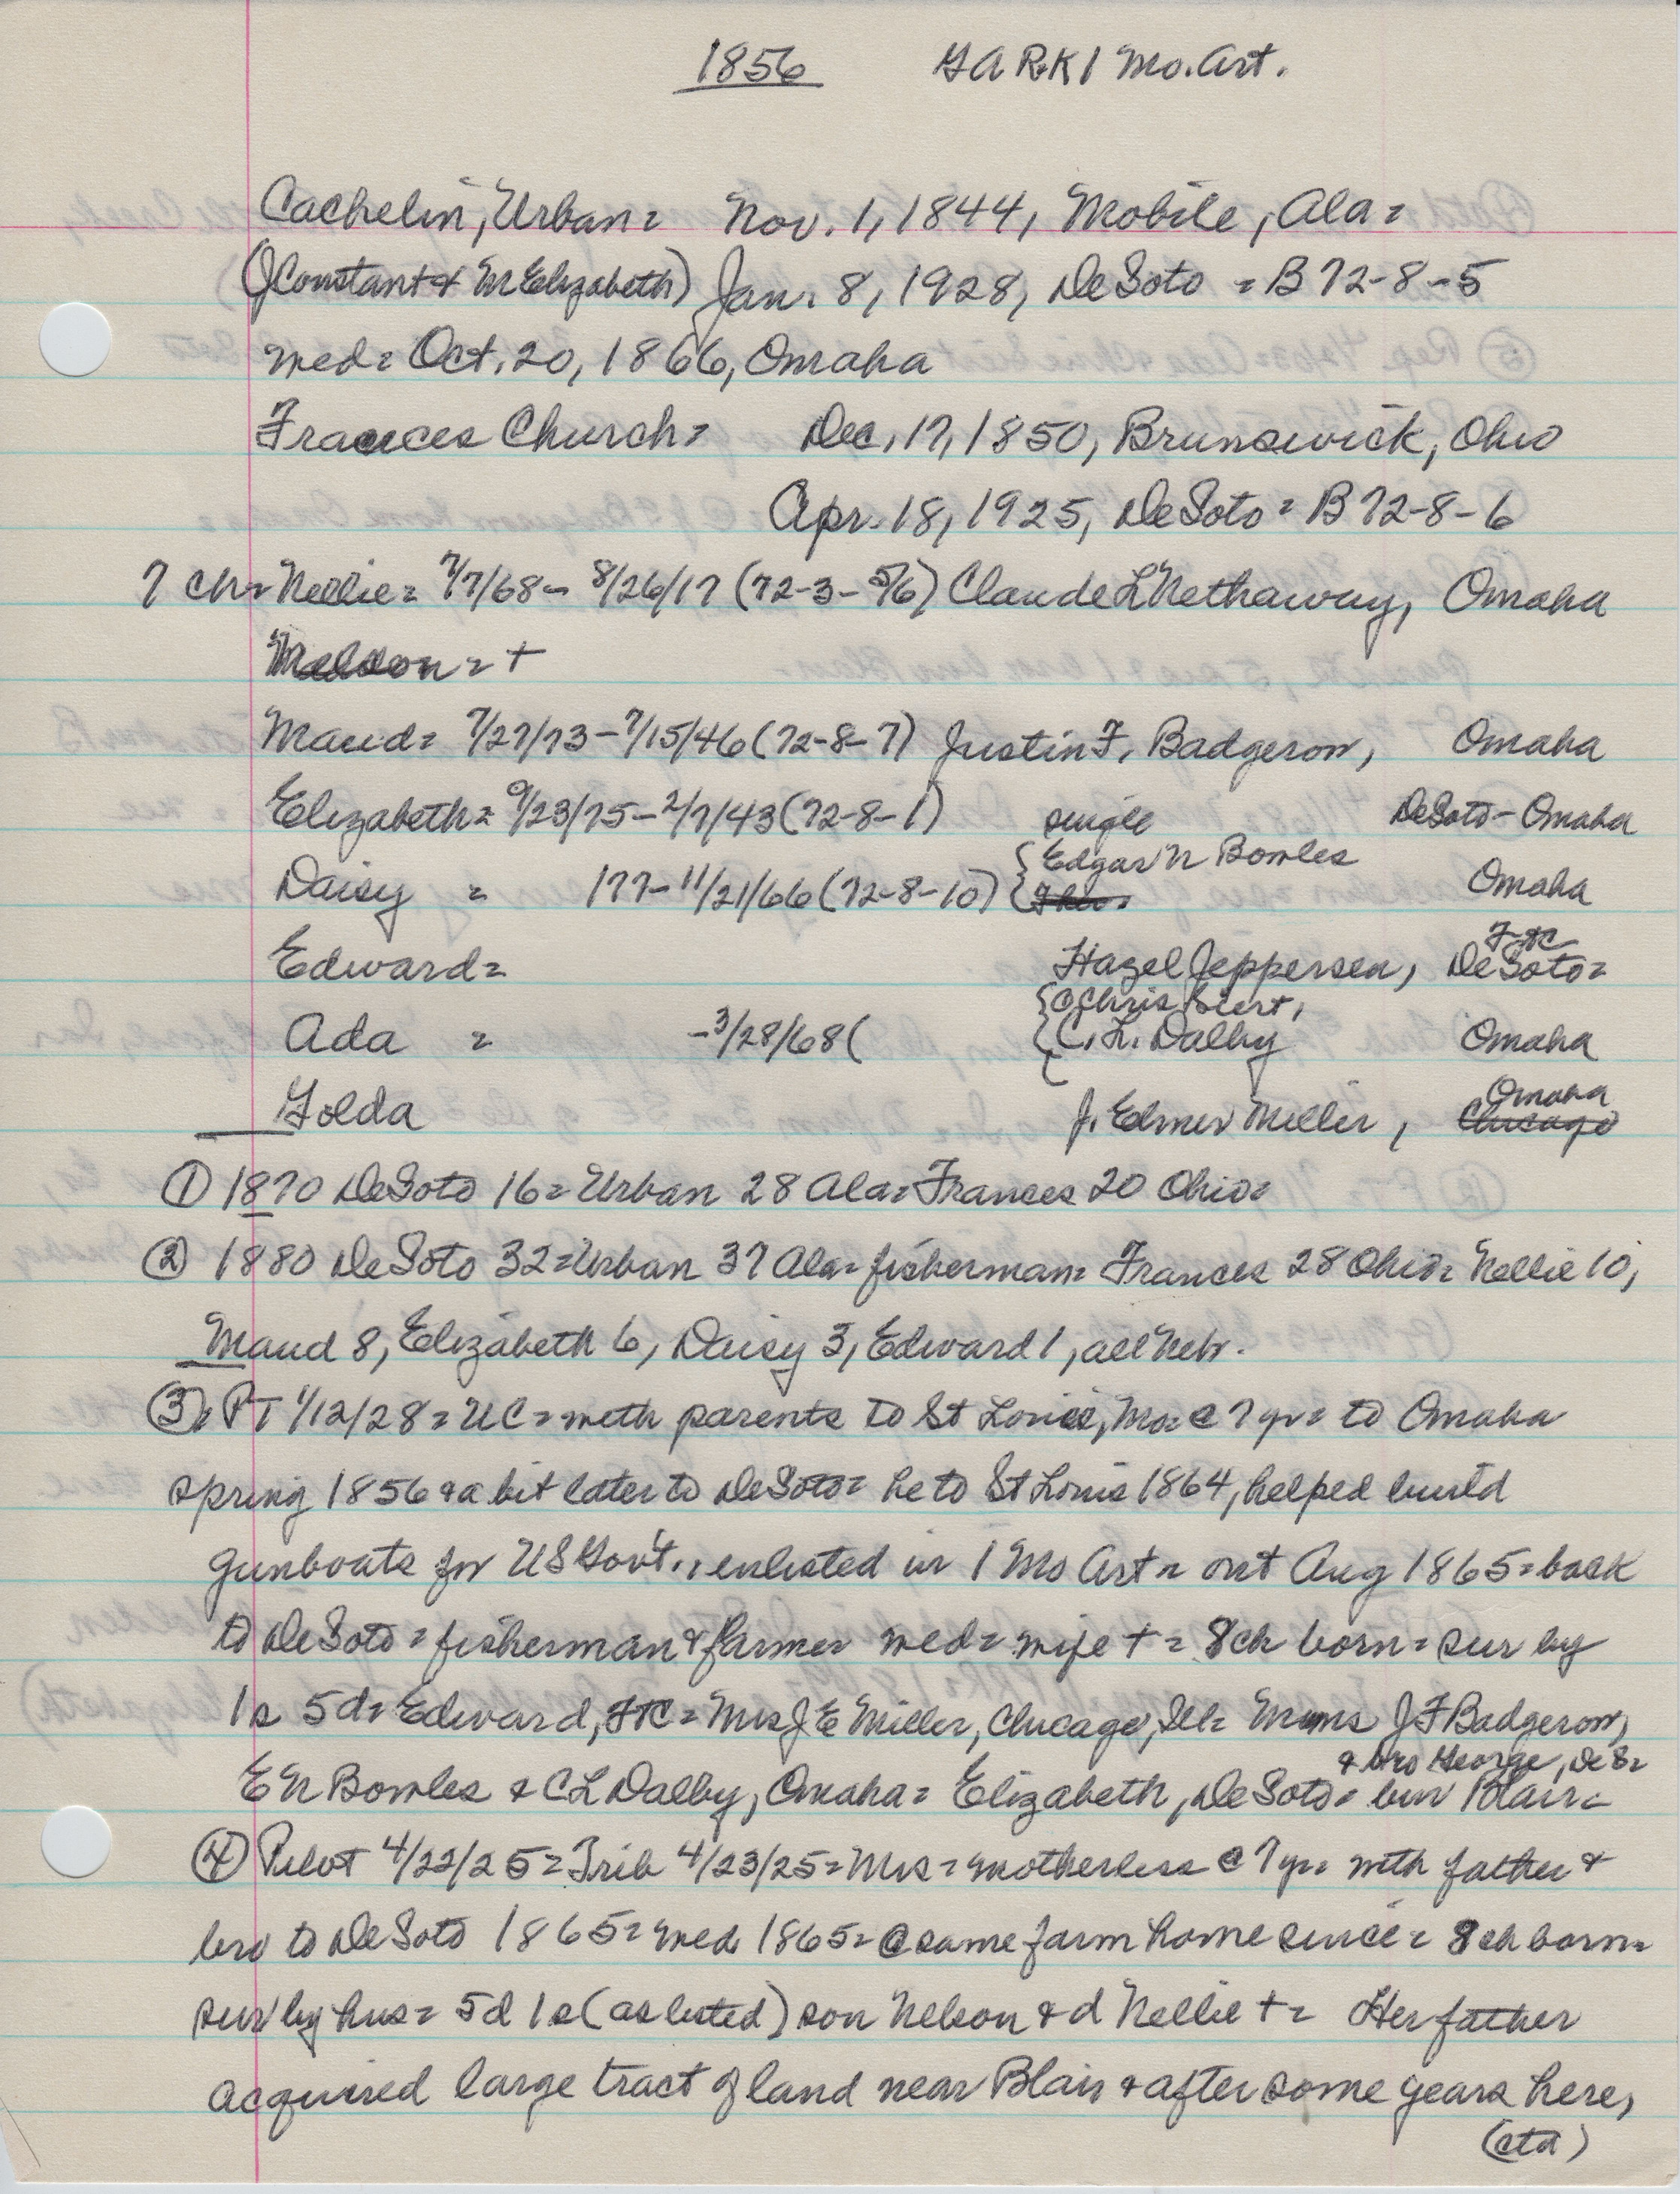 1856 GAR K 1 Mo. Art.
Cachelin, Urban = Nov. 1, 1844, Mobile, Ala =
(J Constant & M Elizabeth) Jan. 8, 1928, DeSoto = B 72-8-5
med = Oct. 20, 1866, Omaha
Frances Church = Dec. 17, 1850, Brunswick, Ohio
Apr. 18, 1925, DeSoto = B 72-8-6
7 ch = Nellie = 7/7/68 - 8/26/17 (72-3-5/6) Claude L Nethaway, Omaha
= +
Maud = 7/27/73 - 7/15/46 (72-8-7) Justin F. Badgerow, Omaha
Elizabeth = 9/23/75 - 2/7/43 (72-8-1) single DeSoto - Omaha
Daisy = 177 - 11/21/66 (72-8-10) { Edgar N Bowles Omaha
Edward = Hazel Jeppersen, FtC DeSoto =
Ada = - 3/28/68 ( { Chris Biert, C. L. Dalby Omaha
Golda J. Elmer Miller, Omaha Chicago
① 1870 DeSoto 16 = Urban 28 Ala = Frances 20 Ohio =
② 1880 DeSoto 32 = Urban 37 Ala = fisherman = Frances 28 Ohio = Nellie 10,
Maud 8, Elizabeth 6, Daisy 3, Edward 1, all Nebr.
③ PT 1/12/28 = UC = with parents to St Louis, Mo = @ 7 yr = to Omaha
spring 1856 & a bit later to DeSoto = he to St Louis 1864, helped build
gunboats for US Gov't., enlisted in 1 Mo Art = out Aug 1865 = back
to DeSoto = fisherman & farmer med = wife + = 8 ch born = sur by
1s 5d = Edward, FtC = Mrs J E Miller, Chicago, Ill = Mmes J F Badgerow,
E N Bowles & C L Dalby, Omaha = Elizabeth, DeSoto = & bro George, DeS = bur Blair =
④ Pilot 4/22/25 = Trib 4/23/25 = Mrs = motherless @ 7 yr = with father &
bro to DeSoto 1865 = med 1865 = @ same farm home since = 8 ch born =
sur by hus = 5d 1s (as listed) son Nelson & d Nellie + = Her father
acquired large tract of land near Blair & after some years here,
(ctd)